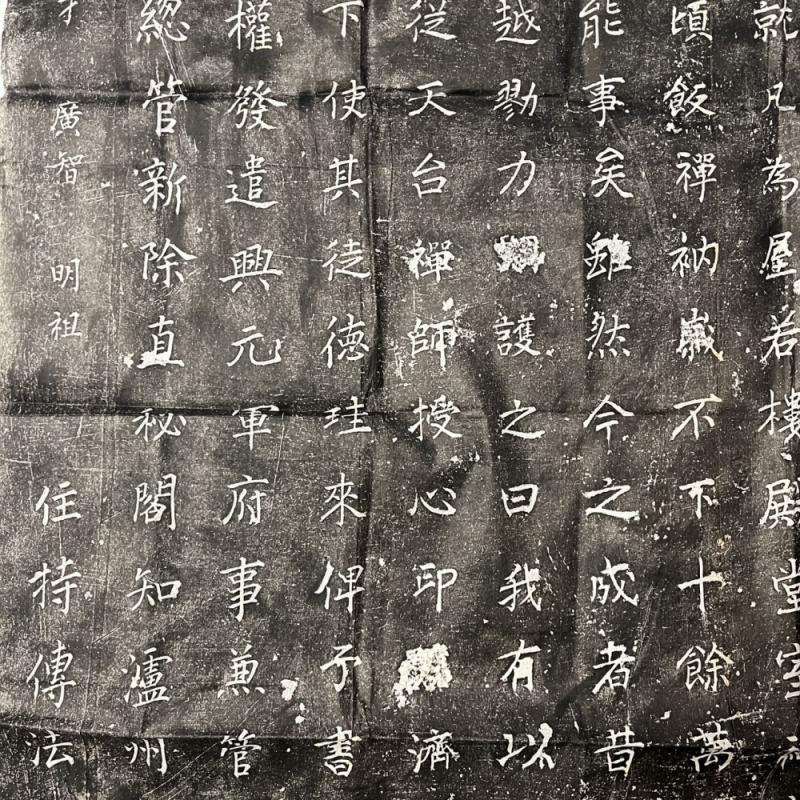 就凡為屋若樓殿堂室
頃飯禪衲歲不下十餘萬
能事矣雖然今之成者昔
越勠力 護之曰我有以
從天台禪師授心印 濟
下使其徒德珪來俾予書
權發遣興元軍府事兼管
總管新除直秘閣知瀘州
廣智 明祖 住持傳法